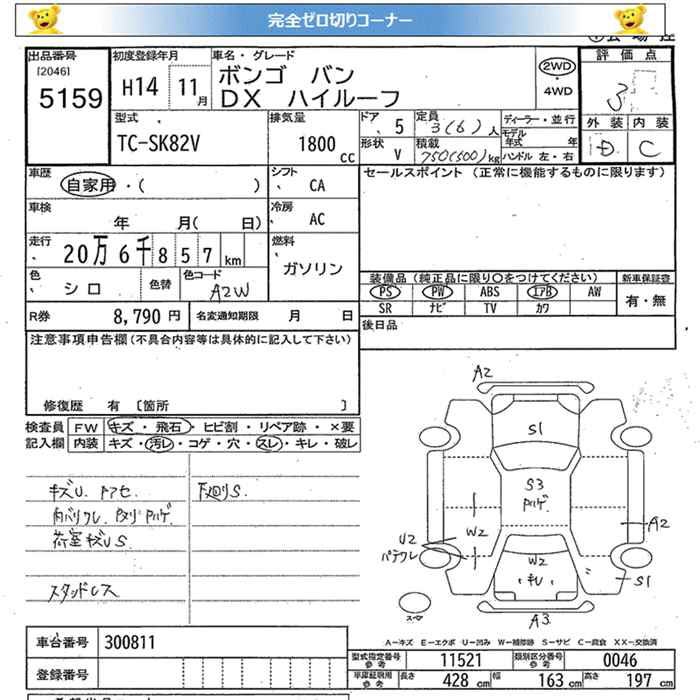 完全ゼロ切りコーナー
出品番号 初度登録年月 車名・グレード 評価点
[2046] 5159 H14 11月 ボンゴ バン 2WD 3
DX ハイルーフ 4WD
外装 内装
D C
型式 排気量 ドア 定員 ディーラー・並行
TC-SK82V 1800cc 5 3(6)人 モデル年式 年
形状 積載 ハンドル 左・右
V 750(500)kg
車歴 シフト セールスポイント(正常に機能するものに限ります)
自家用・( ) CA
車検 冷房
年 月( 日) AC
走行 燃料
20万6千857km ガソリン
装備品(純正品に限り○をつけてください) 新車保証書
色 色替 色コード PS PW ABS エアB AW 有・無
シロ A2W SR ナビ TV カワ
R券 8,790円 名変通知期限 月 日 後日品
注意事項申告欄(不具合内容等は具体的に記入して下さい)
修復歴 有 [箇所 ]
検査員 FW キズ・飛石・ヒビ割・リペア跡・×要
記入欄 内装 キズ・汚レ・コゲ・穴・スレ・キレ・破レ
キズU. 下廻りS.
荷室キズUS
スタッドレス
A2
S1
S3
W2
U2
W2
A2
S1
A3
スペア
A-キズ E-エクボ U-凹み W-補修跡 S-サビ C-腐食 XX-交換済
車台番号 300811
型式指定番号 参考 11521 類別区分番号 参考 0046
登録番号
車庫証明用 参考 長さ 428cm 幅 163cm 高さ 197cm